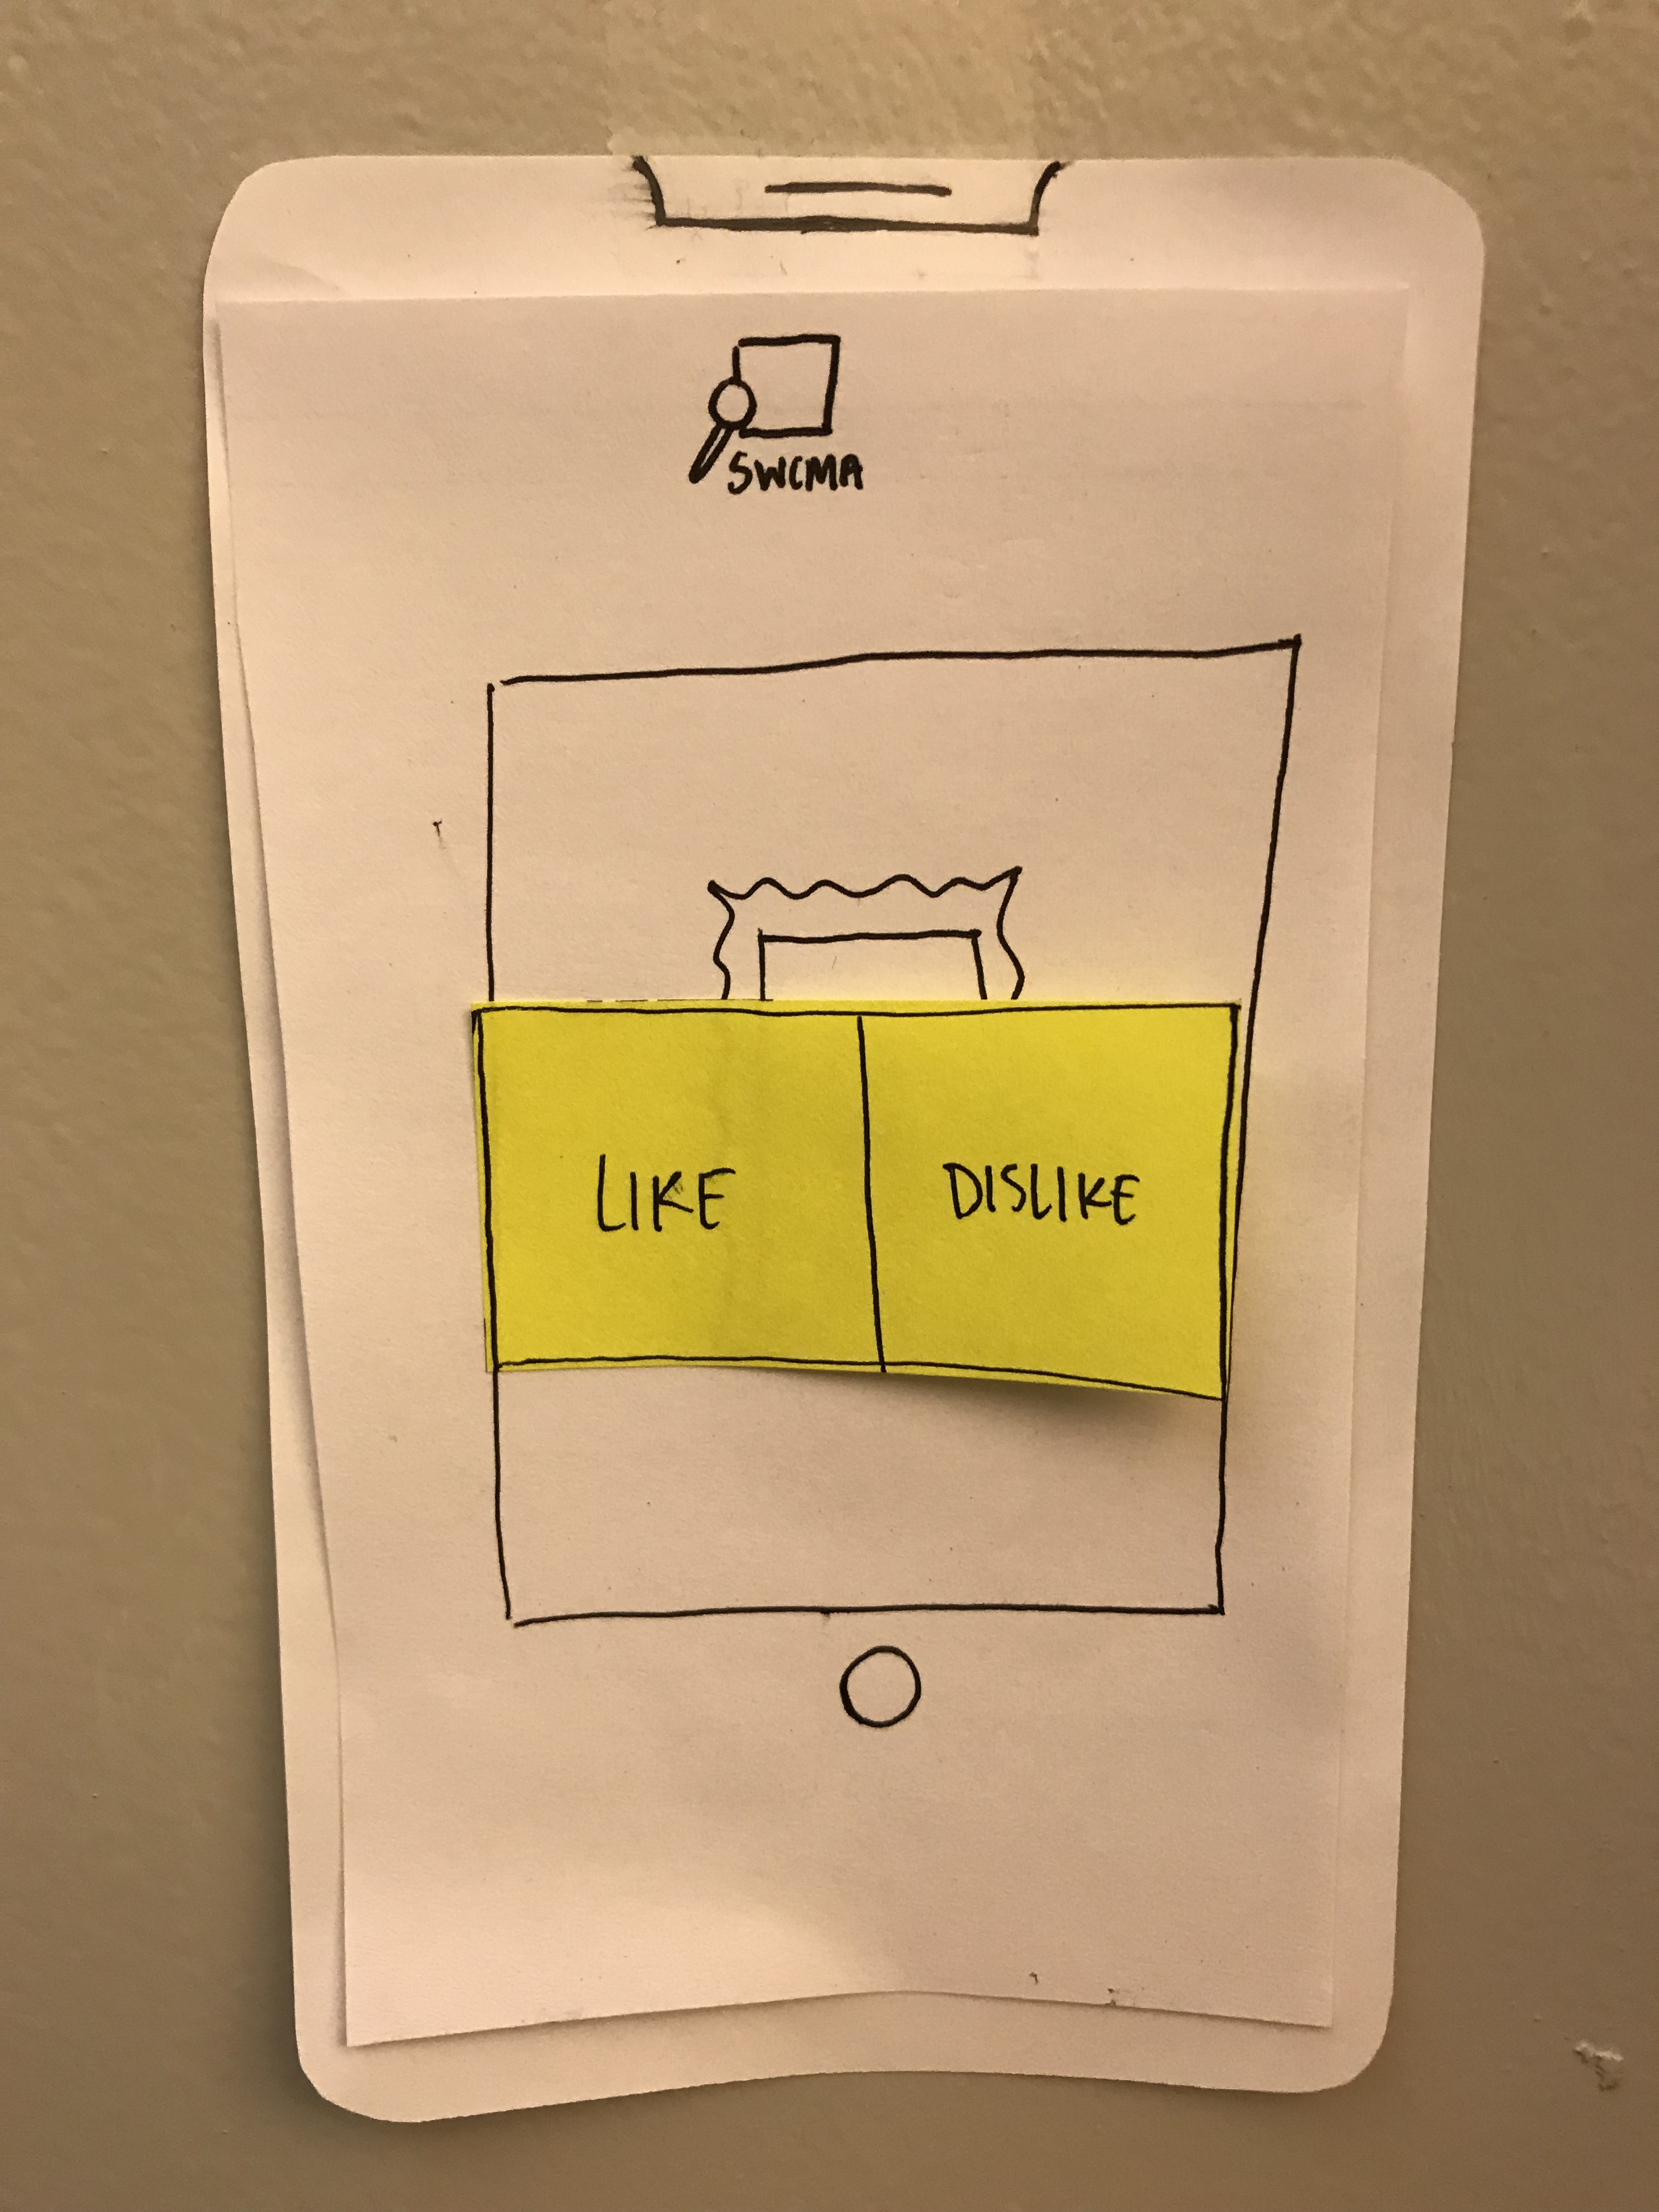 SWCMA
LIKE DISLIKE